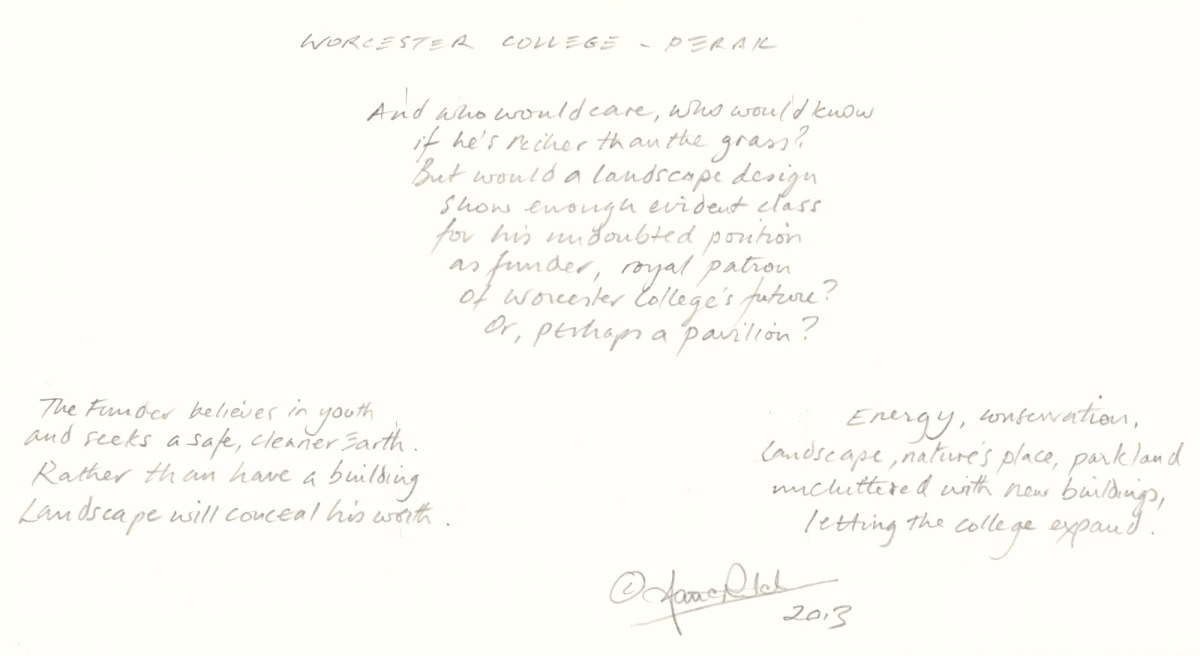 WORCESTER COLLEGE - PERAK
And who would care, who would know
if he's richer than the grass?
But would a landscape design
show enough evident class
for his undoubted position
as funder, royal patron
of Worcester College's future?
Or, perhaps a pavilion?
The Funder believes in youth
and seeks a safe, cleaner Earth.
Rather than have a building
Landscape will conceal his worth.
Energy, conservation,
landscape, nature's place, parkland
uncluttered with new buildings,
letting the college expand.
©
2013